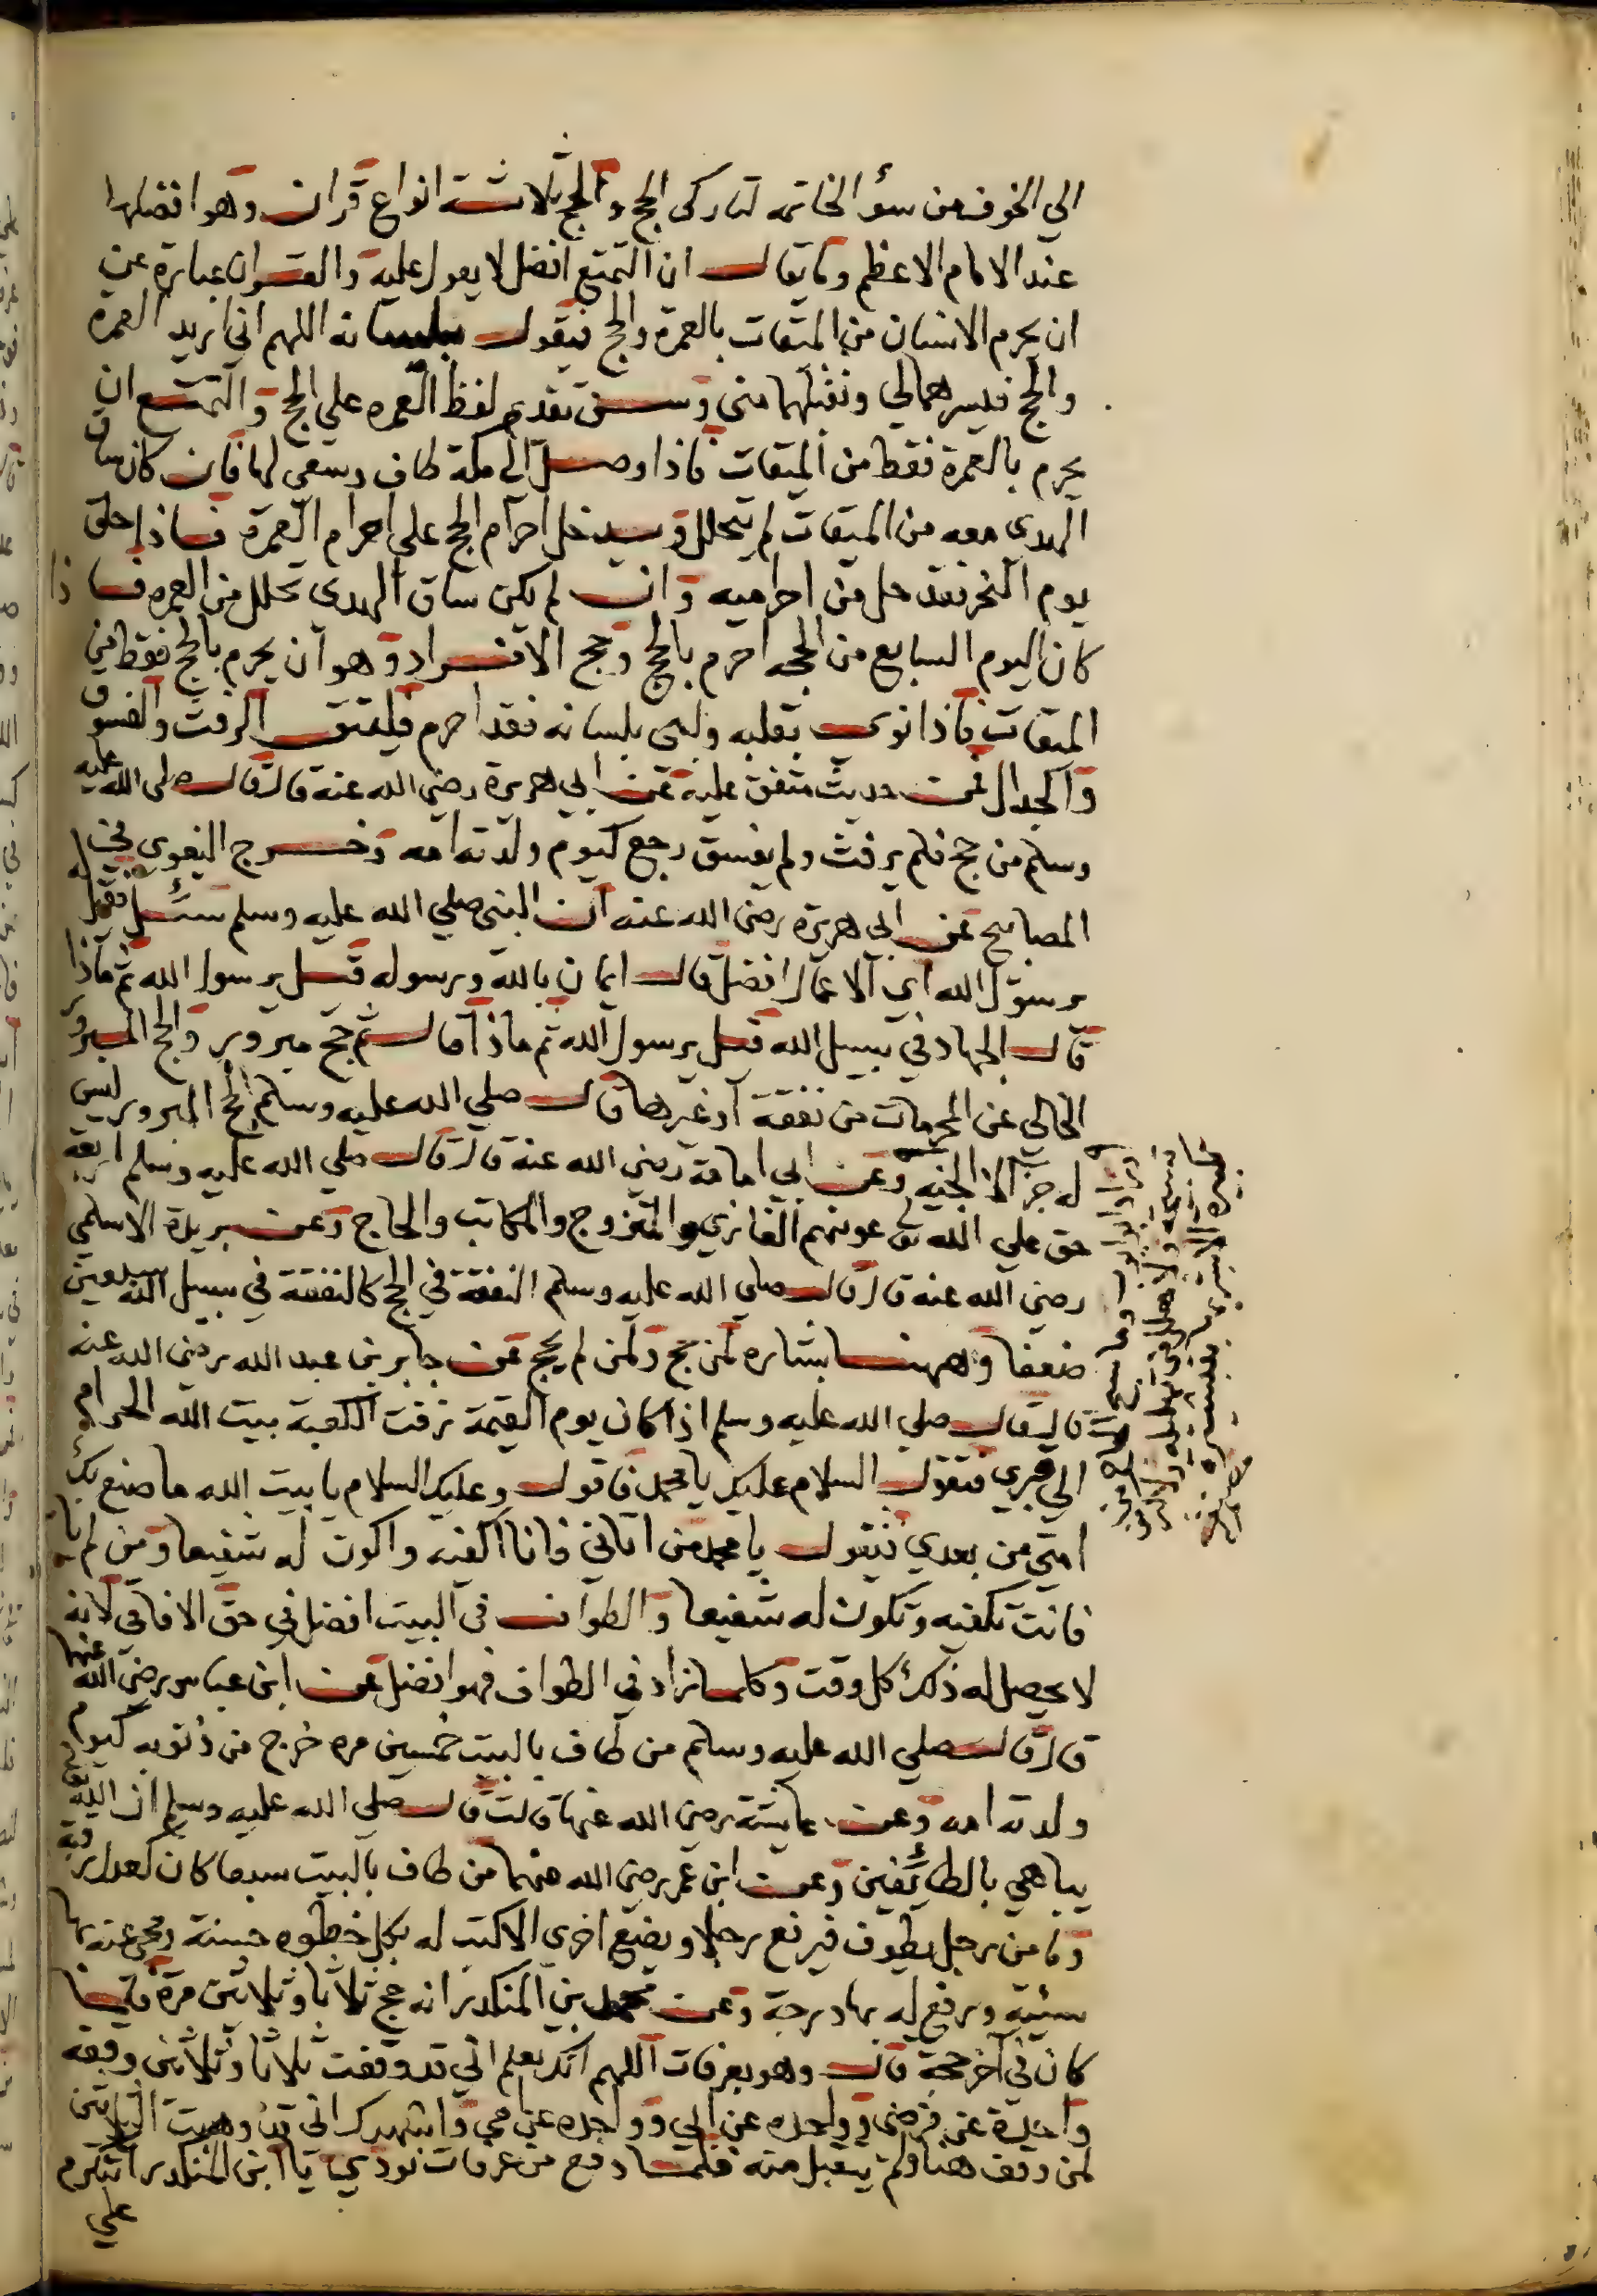 الي الخوف من سؤ الخاتمه لتاركى الحج والحج ثلاثة انواع قران وهو افضلها
عند الامام الاعظم وما يقال ان التمتع افضل لا يعول عليه والقران عبارة عن
ان يحرم الانسان من الميقات بالعمرة والحج فيقول بلسانه اللهم اني اريد العمرة
والحج فيسرهما لي وتقبلهما مني وسن تقديم لفظ العمره علي الحج والتمتع ان
يحرم بالعمرة فقط من الميقات فاذا وصل الى مكة طاف وسعي لها فان كان ساق
الهدى معه من الميقات لم يتحلل ويدخل احرام الحج علي احرام العمرة فاذا حلق
يوم النحر فقد حل من احراميه وان لم يكن ساق الهدي تحلل من العمره فاذا
كان اليوم السابع من الحجه احرم بالحج وحج الافراد وهو ان يحرم بالحج فقط من
الميقات فاذا نوى بقلبه ولبى بلسانه فقد احرم فليتق الرفث والفسوق
والجدال فمن حديث متفق عليه عن ابي هريرة رضي الله عنه قال قال صلى الله عليه
وسلم من حج فلم يرفث ولم يفسق رجع كيوم ولدته امه وخرج البغوى في
المصابيح عن ابي هريرة رضى الله عنه ان النبي صلي الله عليه وسلم سئل فقيل له
يرسول الله اي الاعمال افضل قال ايمان بالله ورسوله قيل يرسول الله ثم ماذا
قال الجهاد في سبيل الله قيل يرسول الله ثم ماذا قال ثم حج مبرور والحج المبرور
الخالي عن المحرمات من نفقة او غيرها قال صلي الله عليه وسلم الحج المبرور ليس
له جزا الا الجنه وعن ابي امامة رضي الله عنه قال قال صلي الله عليه وسلم اربعة
حق علي الله تع عونهم الغازي والمتزوج والمكاتب والحاج وعن بريدة الاسلمي
رضي الله عنه قال قال صلي الله عليه وسلم النفقة في الحج كالنفقة في سبيل الله سبعين
ضعفا وههنا بشاره لمن حج ولمن لم يحج عن جابر بن عبد الله رضى الله عنه
قال قال صلي الله عليه وسلم اذا كان يوم القيمة زفت الكعبة بيت الله الحرام
الي قبري فتقول السلام عليك يا محمد فاقول وعليك السلام يا بيت الله ما صنع بك
امتي من بعدي فتقول يا محمد من اتاني فانا اكفيه واكون له شفيعا ومن لم يات
فانت تكفيه وتكون له شفيعا والطواف في البيت افضل في حق الافاقى لانه
لا يحصل له ذلك كل وقت وكلما زاد في الطواف فهو افضل عن ابن عباس رضى الله عنهما
قال قال صلي الله عليه وسلم من طاف بالبيت خمسين مره خرج من ذنوبه كيوم
ولدته امه وعن عايشة رضى الله عنها قالت قال صلى الله عليه وسلم ان الله تعالى
يباهي بالطائفين وعن ابن عمر رضى الله عنهما من طاف بالبيت سبعا كان كعدل رقبة
وما من رجل يطوف فيرفع رجلا ويضع اخرى الا كتب له بكل خطوه حسنة ومحى عنه بها
سيئة ورفع له بها درجة وعن محمد بن المنكدر انه حج ثلاثا وثلاثين مرة فلما
كان في آخر حجة قال وهو بعرفات اللهم انك تعلم اني قد وقفت ثلاثا وثلاثين وقفه
واحدة عن فرضى وواحده عن ابي وواحده عن امي واشهدك اني قد وهبت الثلاثين
لمن وقف هنا ولم يتقبل منه فلما دفع من عرفات نودي يا ابن المنكدر اتتكرم
علي